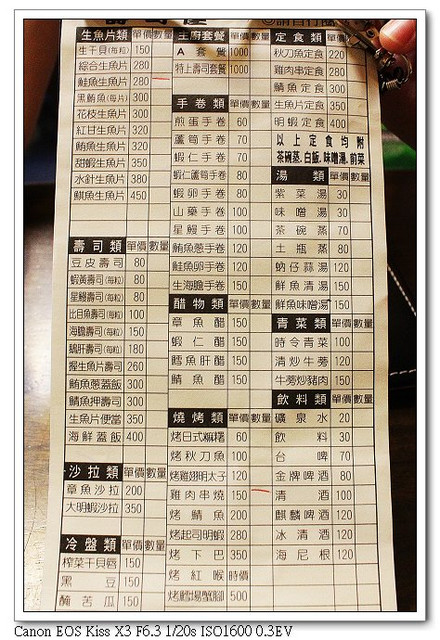 生魚片類 單價 數量
生干貝(每粒) 150
綜合生魚片 280
鮭魚生魚片 280
黑鮪魚(每片) 300
花枝生魚片 300
紅甘生魚片 320
鮪魚生魚片 320
甜蝦生魚片 350
水針生魚片 380
鯕魚生魚片 450
壽司類 單價 數量
豆皮壽司 80
蝦黃壽司(每粒) 80
星鰻壽司(每粒) 80
比目魚壽司(每粒) 100
海膽壽司(每粒) 150
鵝肝壽司(每粒) 180
握生魚片壽司 260
鮪魚蔥蓋飯 300
鯖魚押壽司 300
生魚片便當 350
海鮮蓋飯 400
沙拉類 單價 數量
章魚沙拉 200
大明蝦沙拉 350
冷盤類 單價 數量
榨菜干貝唇 150
黑豆 150
醃苦瓜 150
主廚套餐 單價 數量
A 套餐 1000
特上壽司套餐 1000
手卷類 單價 數量
煎蛋手卷 60
蘆筍手卷 70
蝦仁手卷 70
蝦仁蘆筍手卷 80
蝦卵手卷 80
山藥手卷 100
星鰻手卷 100
鮪魚蔥手卷 120
鮭魚卵手卷 120
生海膽手卷 150
醋物類 單價 數量
章魚醋 150
蝦仁醋 150
鱈魚肝醋 150
鯖魚醋 150
燒烤類 單價 數量
烤日式麻糬 60
烤秋刀魚 100
烤雞翅明太子 120
雞肉串燒 150
烤鯖魚 200
烤起司明蝦 280
烤下巴 350
烤紅喉 時價
烤鱈場蟹腳 500
定食類 單價 數量
秋刀魚定食 220
雞肉串定食 280
鯖魚定食 300
生魚片定食 350
明蝦定食 400
以上定食均附
茶碗蒸.白飯.味噌湯.前菜
湯類 單價 數量
紫菜湯 30
味噌湯 30
茶碗蒸 70
土瓶蒸 80
蛤仔蒜湯 120
鮮魚清湯 150
鮮魚味噌湯 150
青菜類 單價 數量
時令青菜 100
清炒牛蒡 120
牛蒡炒豬肉 150
飲料類 單價 數量
礦泉水 20
飲料 30
台啤 70
金牌啤酒 80
清酒 100
麒麟啤酒 120
冰清酒 120
海尼根 120
Canon EOS Kiss X3 F6.3 1/20s ISO1600 0.3EV